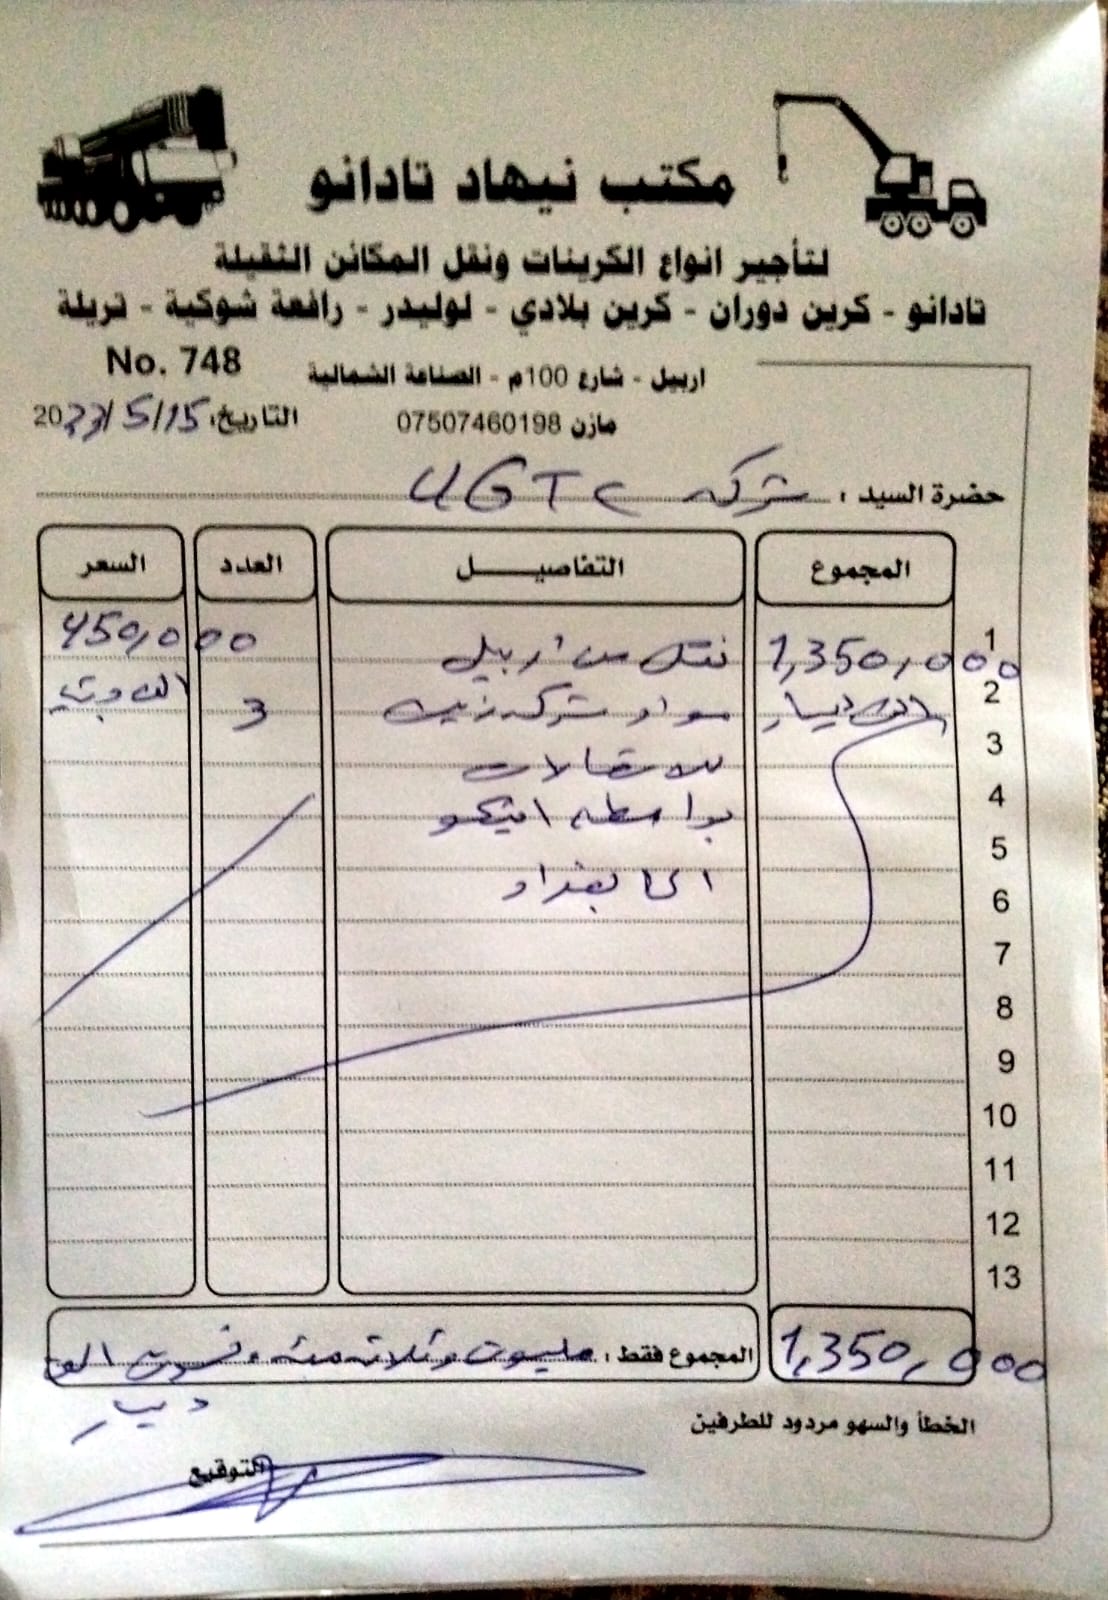 مكتب نيهاد تادانو
لتأجير انواع الكرينات ونقل المكائن الثقيلة
تادانو - كرين دوران - كرين بلادي - لوليدر - رافعة شوكية - تريلة
No. 748
اربيل - شارع 100م - الصناعة الشمالية
مازن 07507460198
التاريخ: 15/5/2023
حضرة السيد : شركة UGTC
المجموع التفاصيـــــل العدد السعر
1 1,350,000 نقل من اربيل 450,000
2 الف دينار مواد شركة زين 3 الف
3 للاتصالات
4 بواسطة
5
6 الى بغداد
7
8
9
10
11
12
13
المجموع فقط : مليون وثلاثمئة وخمسون الف 1,350,000
دينار
الخطأ والسهو مردود للطرفين
التوقيع